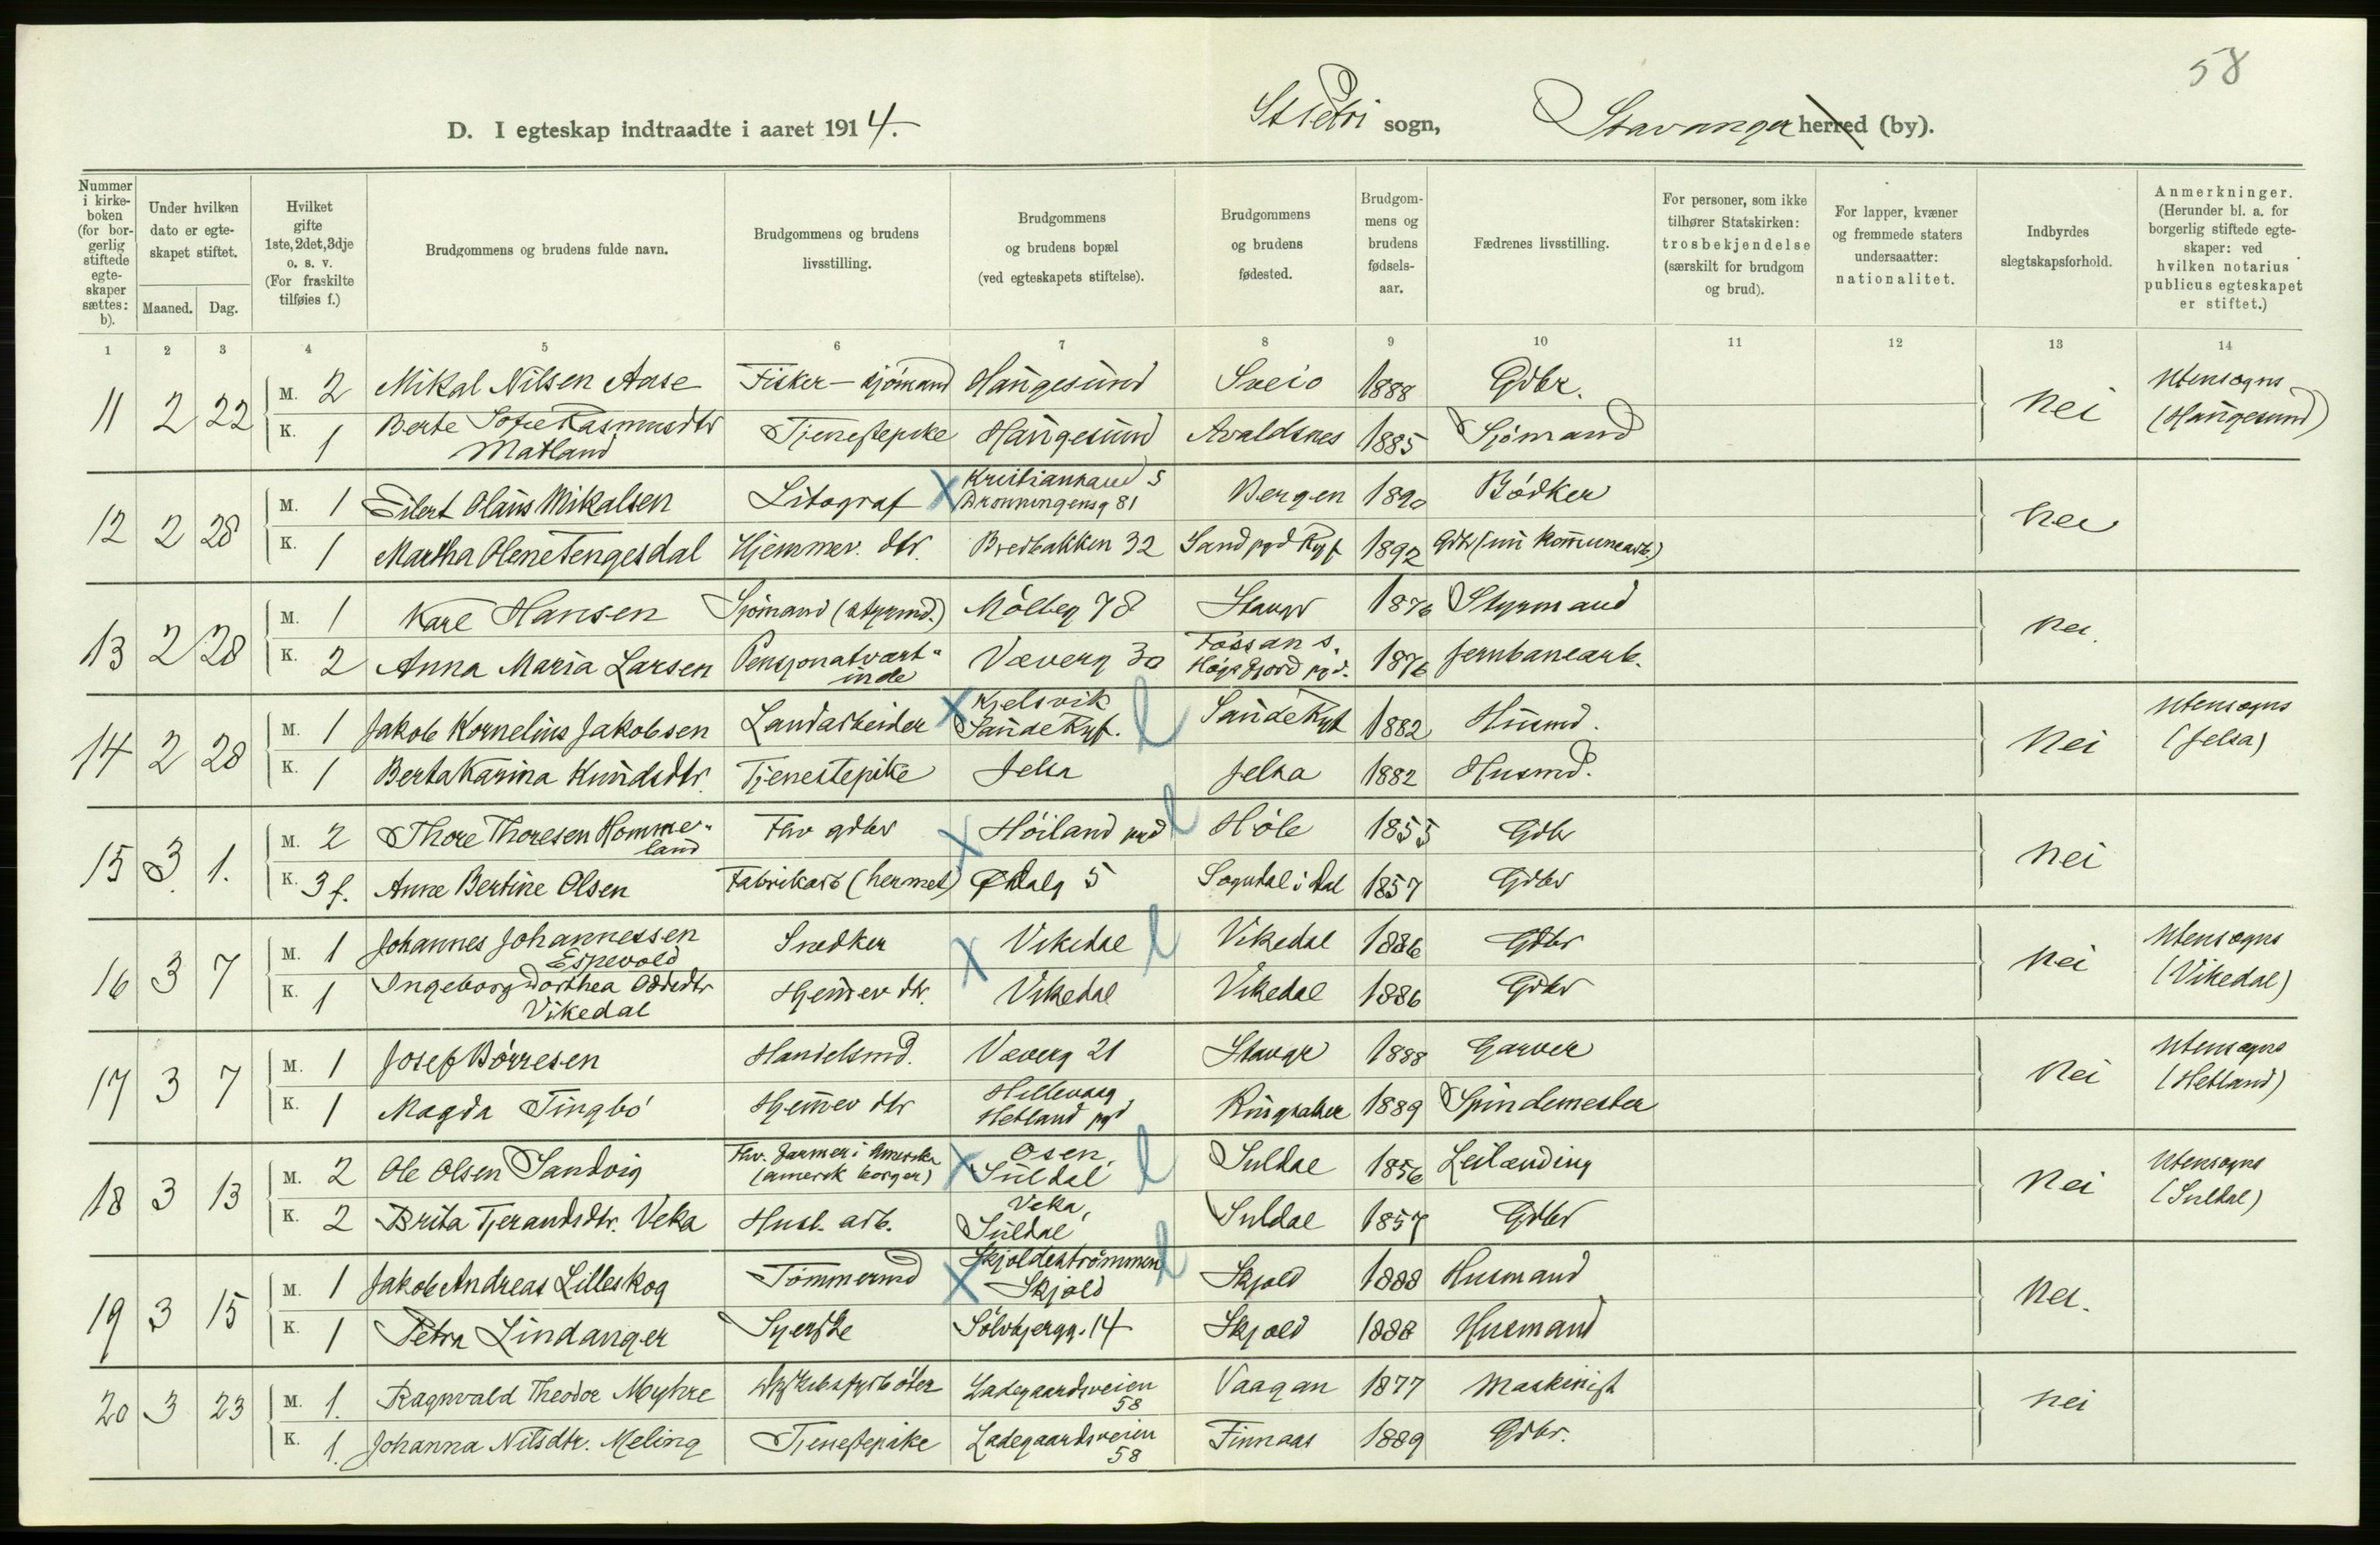 58
D. I egteskap indtraadte i aaret 1914. St Petri sogn, Stavanger herred (by).
Nummer i kirkeboken (for borgerlig stiftede egteskaper sættes: b).
Under hvilken dato er egteskapet stiftet.
Maaned. Dag.
Hvilket gifte 1ste, 2det, 3dje o. s. v. (For fraskilte tilføies f.)
Brudgommens og brudens fulde navn.
Brudgommens og brudens livsstilling.
Brudgommens og brudens bopæl (ved egteskapets stiftelse).
Brudgommens og brudens fødested.
Brudgommens og brudens fødselsaar.
Fædrenes livsstilling.
For personer, som ikke tilhører Statskirken: trosbekjendelse (særskilt for brudgom og brud).
For lapper, kvæner og fremmede staters undersaatter: nationalitet.
Indbyrdes slegtskapsforhold.
Anmerkninger. (Herunder bl. a. for borgerlig stiftede egteskaper: ved hvilken notarius publicus egteskapet er stiftet.)
1 2 3 4 5 6 7 8 9 10 11 12 13 14
11 2 22 M. 2 Mikal Nilsen Aase Fisker - sjömand Haugesund Sveio 1888 Gdbr. Nei Utensogns (Haugesund)
K. 1 Berte Sofie Rasmusdtr Matland Tjenestepike Haugesund Avaldsnes 1885 Sjömand
12 2 28 M. 1 Eilert Olaus Mikalsen Litograf Kristiansand S Dronningensg 81 Bergen 1890 Bödker Nei
K. 1 Martha Olene Tengesdal Hjemmev. dtr. Bredbakken 32 Sand pgd Ryf 1892 Gdbr (nu kommunearb.)
13 2 28 M. 1 Karl Hansen Sjömand (styrmd.) Mölleg 78 Stavgr 1876 Styrmand Nei.
K. 2 Anna Maria Larsen Pensjonatvertinde Væverg 30 Fossan s. Högsfjord pgd. 1876 Jernbanearb.
14 2 28 M. 1 Jakob Kornelius Jakobsen Landarbeider Kjelsvik Saude Ryf. Saude Ryf 1882 Husmd. Nei Utensogns (Jelsa)
K. 1 Berta Karina Knudsdtr. Tjenestepike Jelsa Jelsa 1882 Husmd.
15 3 1. M. 2 Thore Thoresen Hommeland Fhv gdbr Höiland pgd Höle 1855 Gdbr Nei
K. 3 f. Anne Bertine Olsen Fabrikarb (hermet) Ødalg 5 Sogndal i Dal 1857 Gdbr
16 3 7 M. 1 Johannes Johannessen Espevold Snedker Vikedal Vikedal 1886 Gdbr Nei Utensogns (Vikedal)
K. 1 Ingeborg Dorthea Oddsdtr Vikedal Hjemmev dtr. Vikedal Vikedal 1886 Gdbr
17 3 7 M. 1 Josef Börresen Handelsmd. Væverg 21 Stavgr 1888 Garver Nei Utensogns (Hetland)
K. 1 Magda Tingbö Hjemmev dtr Hillevaag Hetland pgd Ringsaker 1889 Spindemester
18 3 13 M. 2 Ole Olsen Sandvig Fhv. farmer i Amerika (amerik borger) Osen, Suldal Suldal 1856 Leilænding Nei Utensogns (Suldal)
K. 2 Brita Tjerandsdtr. Veka Husl. arb. Veka, Suldal Suldal 1857 Gdbr
19 3 15 M. 1 Jakob Andreas Lilleskog Tömmermd Skjoldeströmmen Skjold Skjold 1888 Husmand Nei.
K. 1 Petra Lindanger Syerske Sölvbjergg. 14 Skjold 1888 Husmand
20 3 23 M. 1. Ragnvald Theodor Myhre Ladegaardsveien 58 Vaagan 1877 Maskinist Nei
K. 1. Johanna Nilsdtr. Meling Tjenestepike Ladegaardsveien 58 Finnaas 1889 Gdbr.